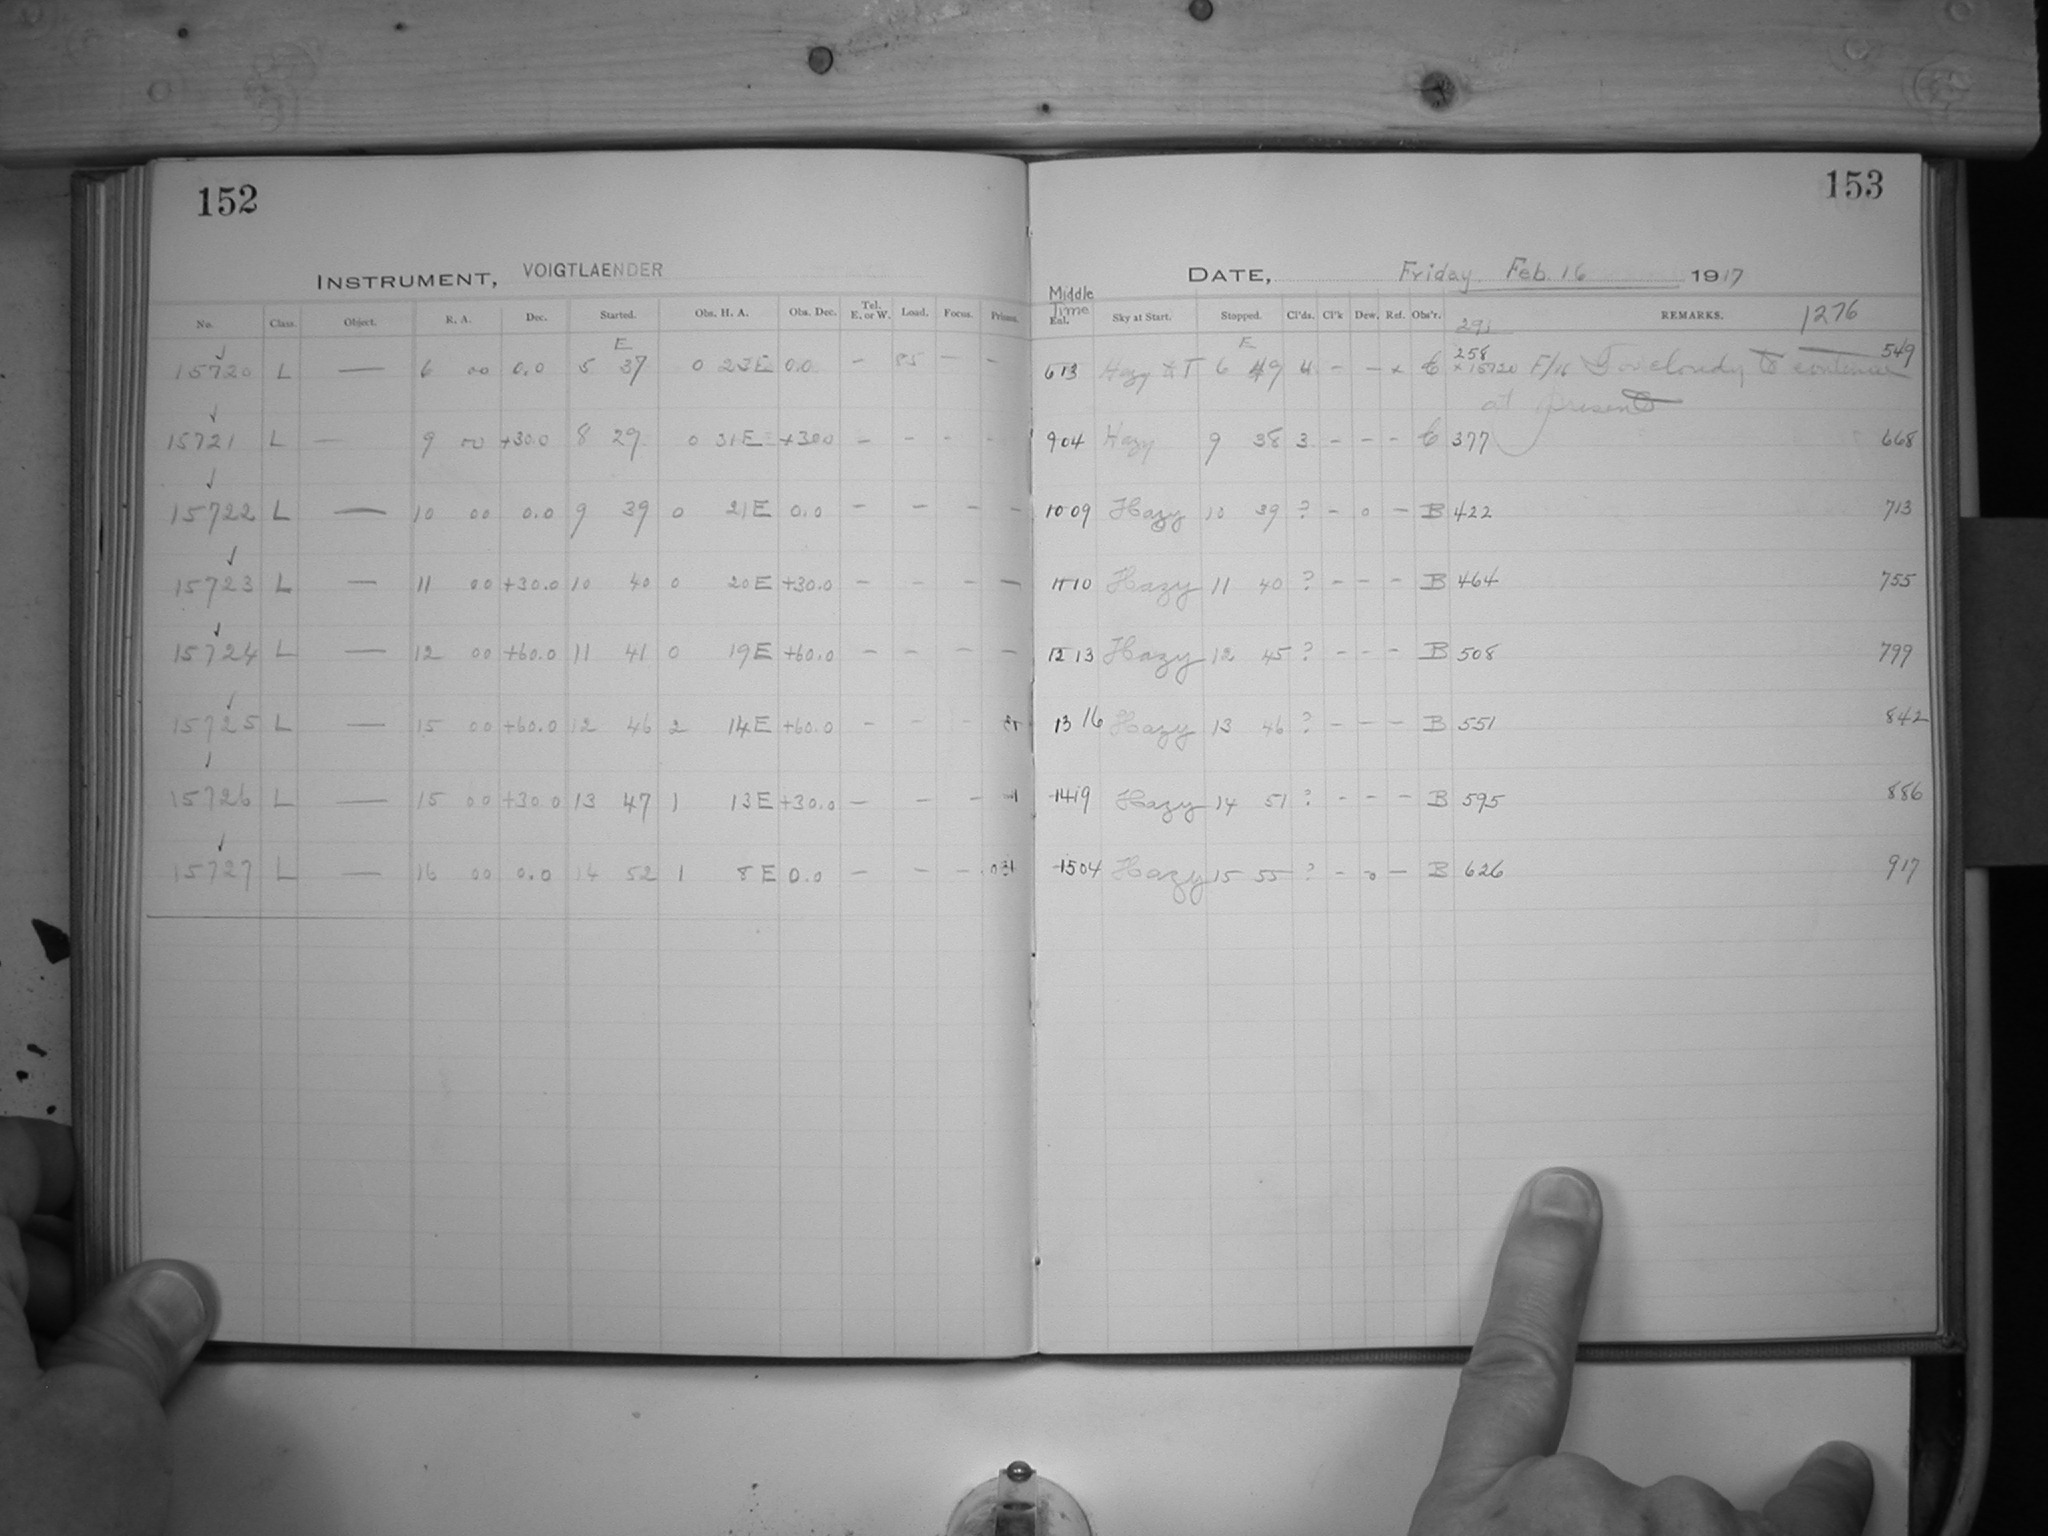 152
INSTRUMENT, VOIGTLAENDER
No. Class. Object. R. A. Dec. Started. Obs. H. A. Obs. Dec. Tel. E. or W. Load. Focus. Prisms.
E
15720 L — 6 00 0.0 5 37 0 23E 0.0 — 85 — —
15721 L — 9 00 +30.0 8 29 0 31E +30.0 — — — —
15722 L — 10 00 0.0 9 39 0 21E 0.0 — — — —
15723 L — 11 00 +30.0 10 40 0 20E +30.0 — — — —
15724 L — 12 00 +60.0 11 41 0 19E +60.0 — — — —
15725 L — 15 00 +60.0 12 46 2 14E +60.0 — — —
15726 L — 15 00 +30.0 13 47 1 13E +30.0 — — —
15727 L — 16 00 0.0 14 52 1 8E 0.0 — — —
153
DATE, Friday Feb. 16 1917
Middle Time
Sky at Start. Stopped. Cl'ds. Cl'k Dew. Ref. Obs'r. REMARKS. 1276
291
E
6 13 Hazy & T 6 49 4 - - x C 258 x 15720 F/16 Too cloudy to continue 549
at present
9 04 Hazy 9 38 3 - - - C 377 668
10 09 Hazy 10 39 ? - o - B 422 713
11 10 Hazy 11 40 ? - - - B 464 755
12 13 Hazy 12 45 ? - - - B 508 799
13 16 Hazy 13 46 ? - - - B 551 842
14 19 Hazy 14 51 ? - - - B 595 886
15 04 Hazy 15 55 ? - o - B 626 917